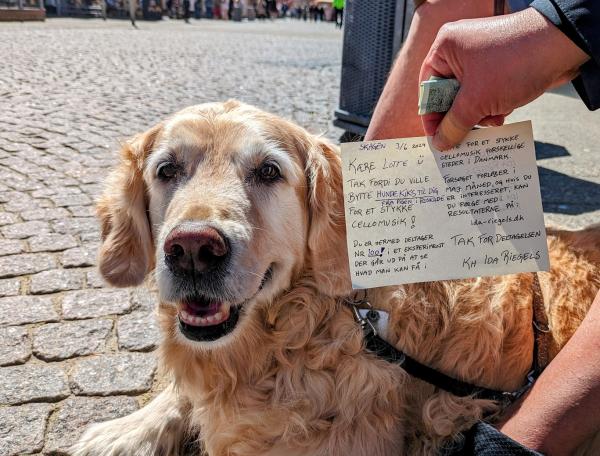 SKAGEN 3/6 2024
KÆRE LOTTE Ü
TAK FORDI DU VILLE
BYTTE HUNDEKIKS TIL DIG
FRA PIGER I ROSKILDE
FOR ET STYKKE
CELLOMUSIK!
DU ER HERMED DELTAGER
NR 100! I ET EKSPERIMENT
DER GÅR UD PÅ AT SE
HVAD MAN KAN FÅ I
FOR ET STYKKE
CELLOMUSIK FORSKELLIGE
STEDER I DANMARK.
FORSØGET FORLØBER I
MAJ MÅNED, OG HVIS DU
ER INTERESSERET, KAN
DU FØLGE MED I
RESULTATERNE PÅ:
ida-riegels.dk
TAK FOR DELTAGELSEN
KH IDA RIEGELS